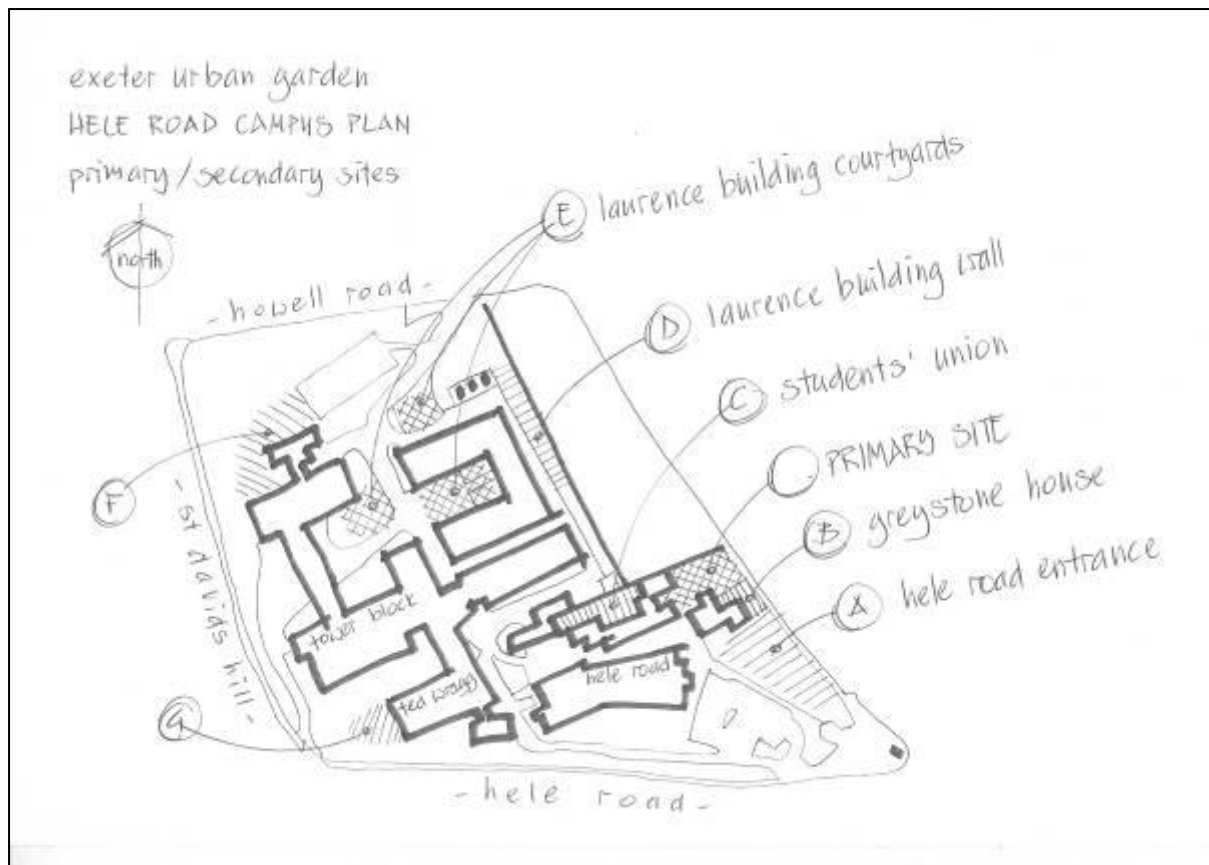 exeter urban garden
HELE ROAD CAMPUS PLAN
primary/secondary sites
north
E laurence building courtyards
- howell road -
D laurence building wall
C students' union
PRIMARY SITE
B greystone house
A hele road entrance
F
- st davids hill -
tower block
ted wragg
hele road
G
- hele road -